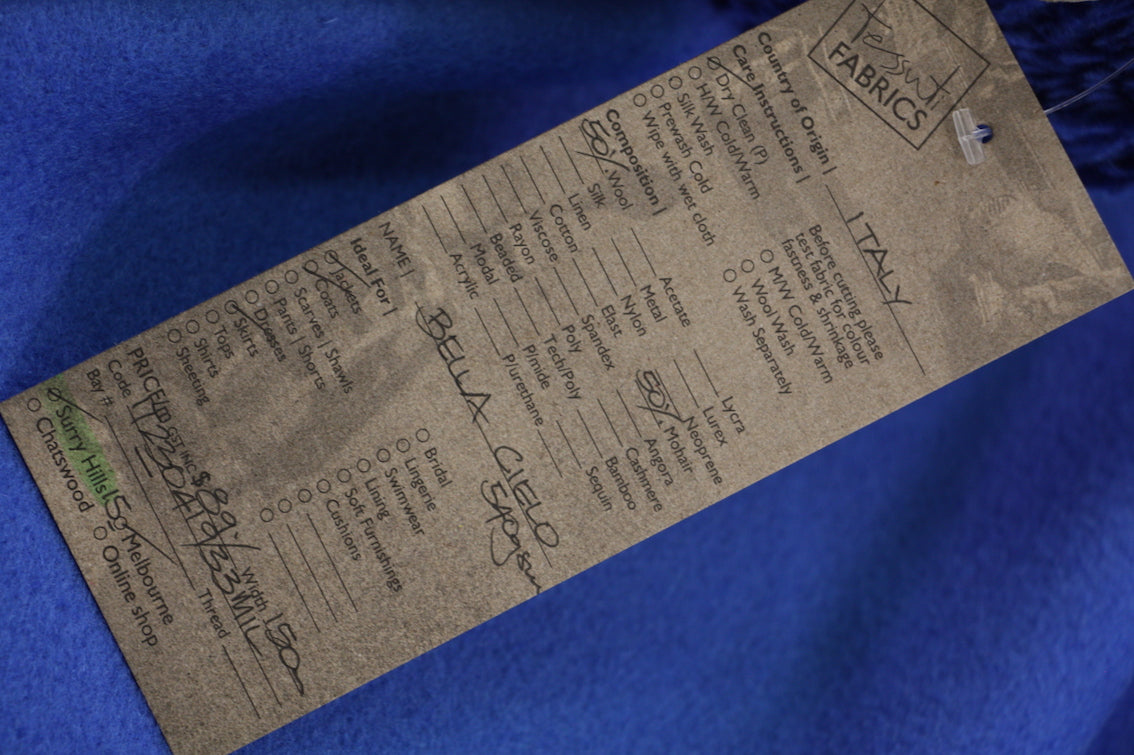 tessuti
FABRICS
Country of Origin | ITALY
Care Instructions |
Dry Clean (P)
H/W Cold/Warm
Silk Wash
Prewash Cold
Wipe with wet cloth
Before cutting please
test fabric for colour
fastness & shrinkage
M/W Cold/Warm
Wool Wash
Wash Separately
Composition |
50% Wool
Silk
Linen
Cotton
Viscose
Rayon
Beaded
Modal
Acrylic
Acetate
Metal
Nylon
Elast
Spandex
Poly
Tech/Poly
P/mide
P/urethane
Lycra
Lurex
Neoprene
50% Mohair
Angora
Cashmere
Bamboo
Sequin
NAME | BELLA CIELO
540gsm
Ideal For |
Jackets
Coats
Scarves | Shawls
Pants | Shorts
Dresses
Skirts
Tops
Shirts
Sheeting
Bridal
Lingerie
Swimwear
Lining
Soft Furnishings
Cushions
PRICE | PD GST INC $89.- Width 150
Code Thread
Bay #
Surry Hills Melbourne
Chatswood Online shop